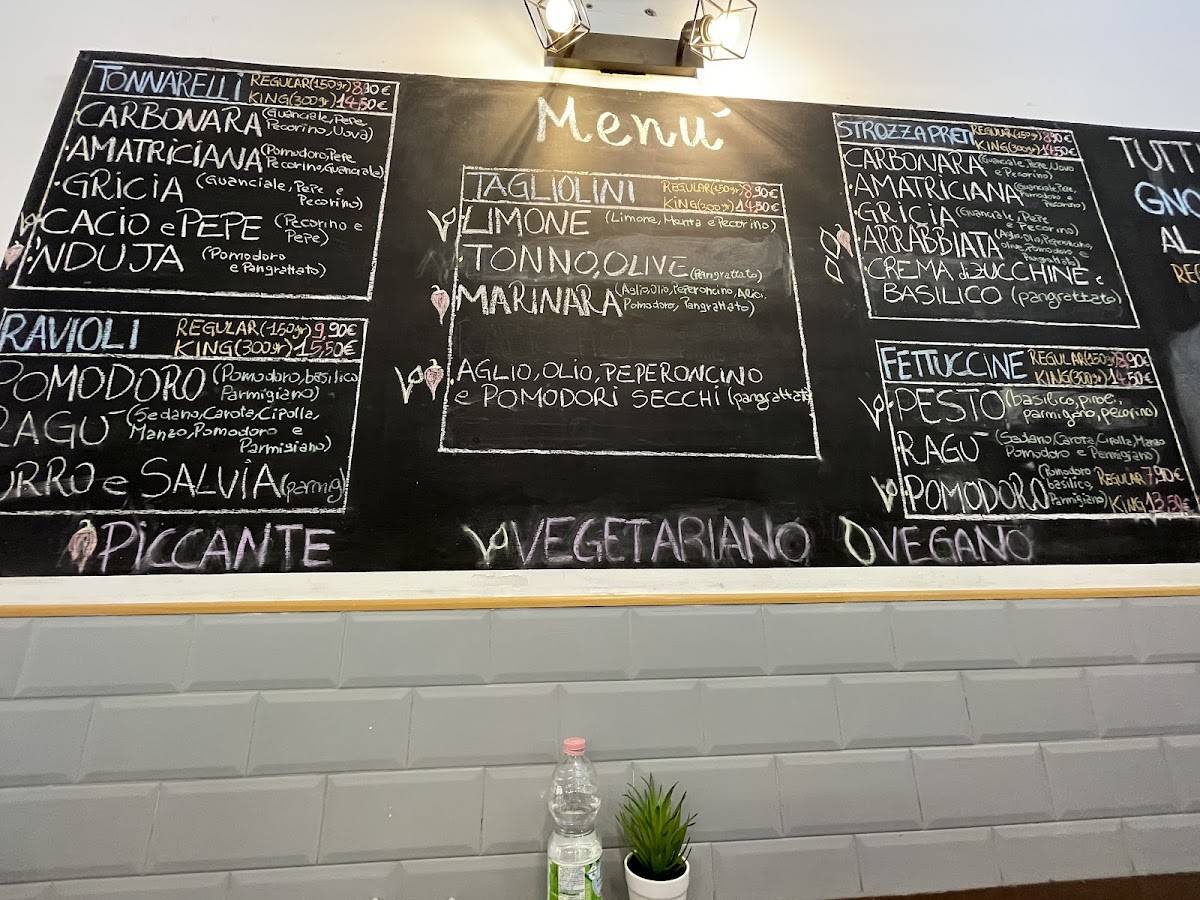 TONNARELLI REGULAR(150gr)8,90€
KING(300gr)14,50€
CARBONARA (Guanciale, Pepe
Pecorino, Uova)
AMATRICIANA (Pomodoro, Pepe
Pecorino, Guanciale)
GRICIA (Guanciale, Pepe e
Pecorino)
CACIO e PEPE (Pecorino e
Pepe)
'NDUJA (Pomodoro
e Pangrattato)
RAVIOLI REGULAR(150gr)9,90€
KING(300gr)15,50€
POMODORO (Pomodoro, basilico
Parmigiano)
RAGÙ (Sedano, Carota, Cipolla,
Manzo, Pomodoro e
Parmigiano)
URRO e SALVIA (parmig)
Menù
TAGLIOLINI REGULAR(150gr)8,90€
KING(300gr)14,50€
LIMONE (Limone, Menta e Pecorino)
TONNO, OLIVE (Pangrattato)
MARINARA (Aglio, Olio, Peperoncino, Alici,
Pomodoro, Pangrattato)
AGLIO, OLIO, PEPERONCINO
e POMODORI SECCHI (pangrattato)
STROZZAPRETI REGULAR(150gr)8,90€
KING(300gr)14,50€
CARBONARA (Guanciale, Pepe, Uovo
e Pecorino)
AMATRICIANA (Guanciale, Pepe,
Pomodoro e
Pecorino)
GRICIA (Guanciale, Pepe
e Pecorino)
ARRABBIATA (Aglio, Olio, Peperoncino,
olive, Pomodoro e
Pangrattato)
CREMA di ZUCCHINE e
BASILICO (pangrattato)
FETTUCCINE REGULAR(150gr)8,90€
KING(300gr)14,50€
PESTO (basilico, pinoli,
parmigiano, pecorino)
RAGÙ (Sedano, Carota, Cipolla, Manzo
Pomodoro e Parmigiano)
POMODORO (Pomodoro
basilico,
Parmigiano) REGULAR 7,90€
KING 13,50€
TUTTI
GNO
AL
RE
PICCANTE VEGETARIANO VEGANO